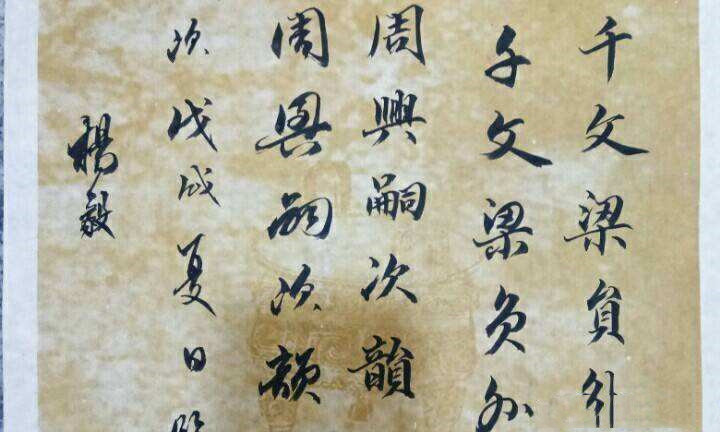 千文梁員外
千文梁負外
周興嗣次韻
周興嗣次韻
次戊戌夏日臨
楊毅